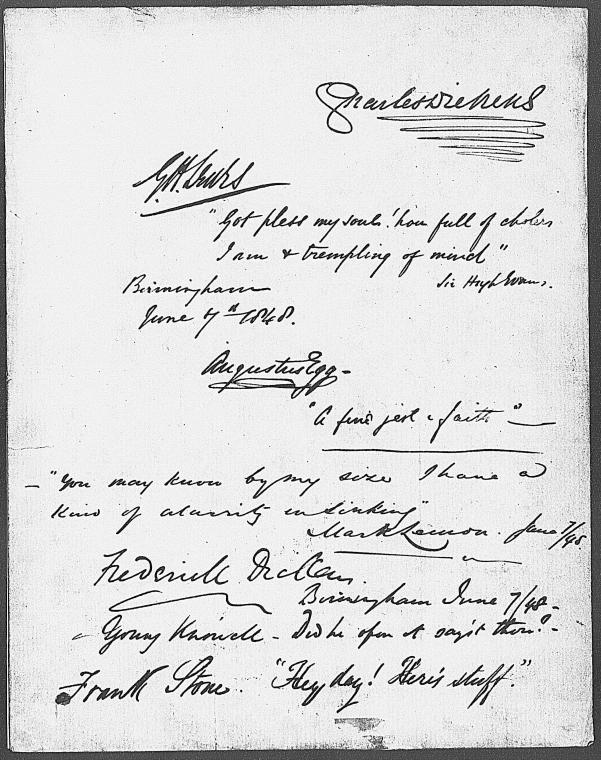 Charles Dickens
G H Lewes
"Got pless my soul! how full of cholers
I am & trempling of mind"
Sir Hugh Evans.
Birmingham
June 7th 1848.
Augustus Egg -
"A fine jest i' faith" —
— "You may know by my size I have a
Kind of alacrity in sinking"
Mark Lemon. June 7/48
Frederick Dickens.
Birmingham June 7/48 -
- Young Knowell - Did he open it say'st thou? -
Frank Stone. "Hey day! Here's stuff."